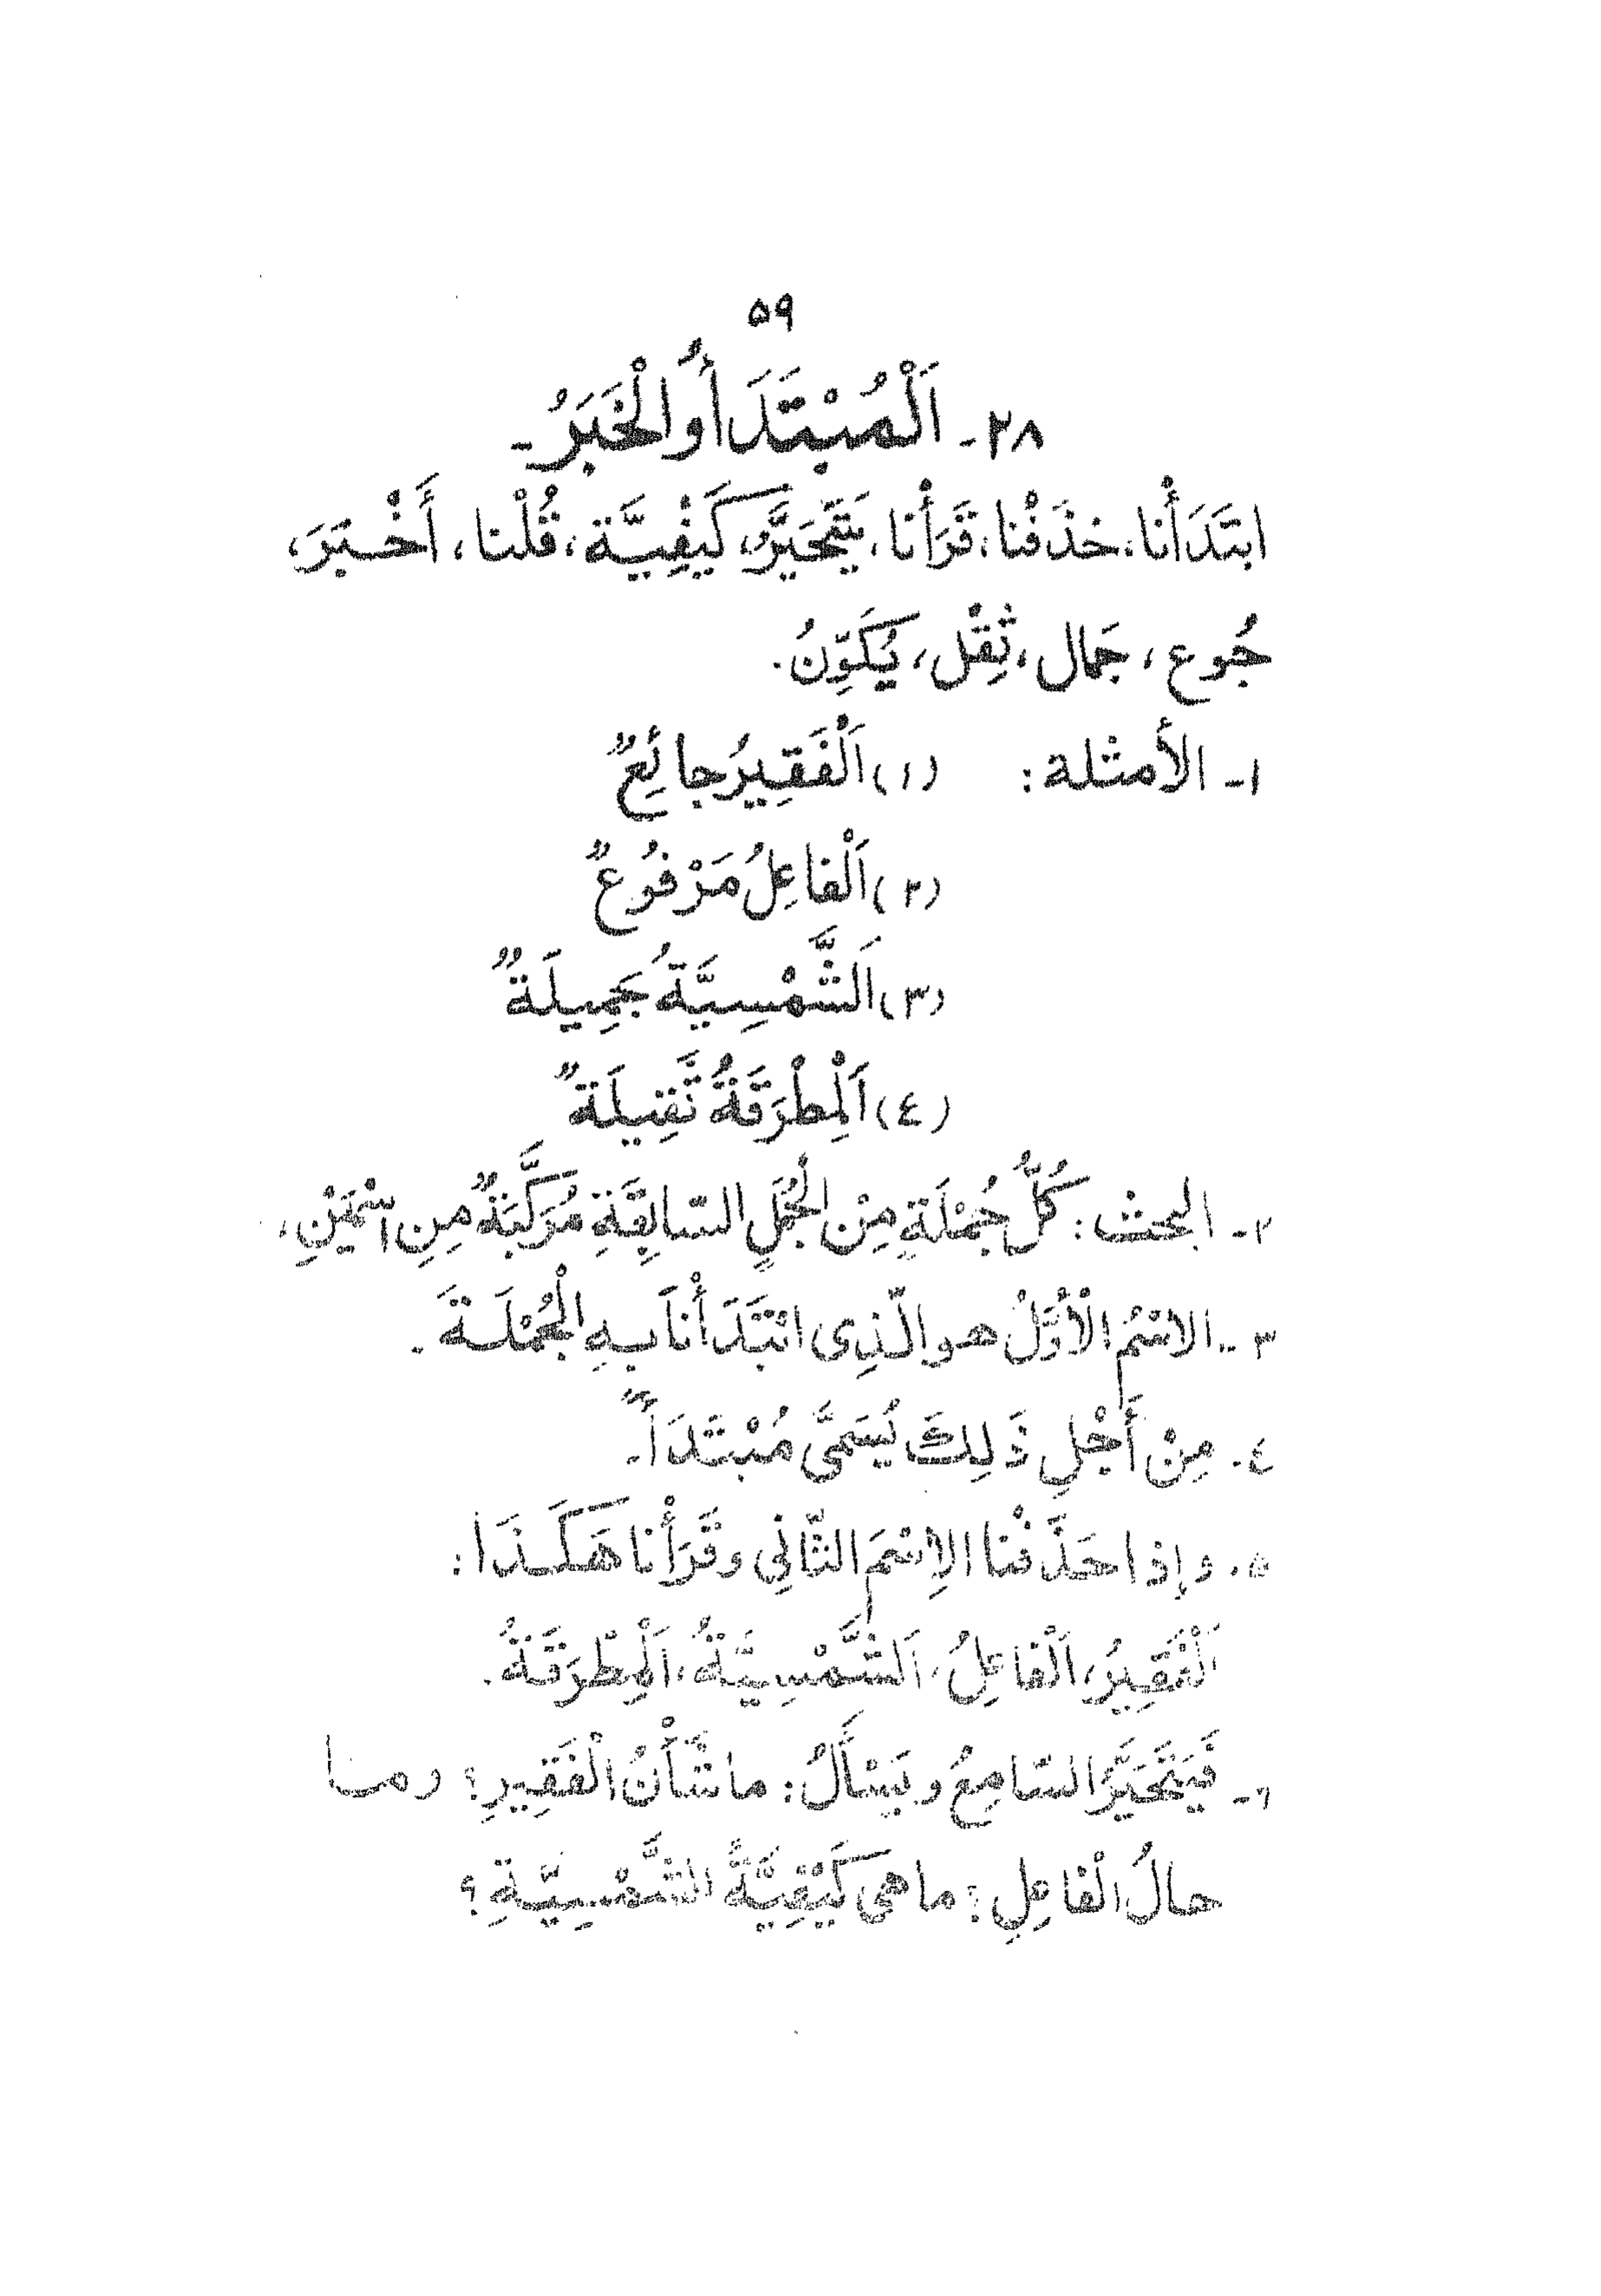 ٥٩
٢٨ـ اَلْمُبْتَدَأُ والْخَبَرُ ـ
ابتَدَأْنا، حَذَفْنا، قَرَأْنا، يَتَحَيَّرُ، كَيْفِيَّة، قُلْنا، أَخْبَرَ،
جُوع، جَمال، ثِقْل، يُكَوِّنُ.
١ـ الأمثلة: (١) اَلْفَقِيرُ جائِعٌ
(٢) اَلْفاعِلُ مَرْفُوعٌ
(٣) اَلشَّمْسِيَّةُ جَمِيلَةٌ
(٤) اَلْمِطْرَقَةُ ثَقِيلَةٌ
٢ـ البحث: كُلُّ جُمْلَةٍ مِنْ الْجُمَلِ السّابِقَةِ مُرَكَّبَةٌ مِنِ اسْمَيْنِ،
٣ـ الاسْمُ الْأَوَّلُ هو الّذِى ابْتَدَأْنا بِهِ الْجُمْلَةَ.
٤ـ مِنْ أَجْلِ ذَلِكَ يُسَمَّى مُبْتَدَأً.
٥ـ وإذا حَذَفْنا الِاسْمَ الثّانِي وقَرَأْنا هَكَذَا:
اَلْفَقِيرُ، اَلْفاعِلُ، اَلشَّمْسِيَّةُ، اَلْمِطْرَقَةُ.
٦ـ فَيَتَحَيَّرُ السّامِعُ ويَسْأَلُ: ما شَأْنُ الْفَقِيرِ؟ وما
حالُ الْفاعِلِ؟ ما هى كَيْفِيَّةُ الشَّمْسِيَّةِ؟